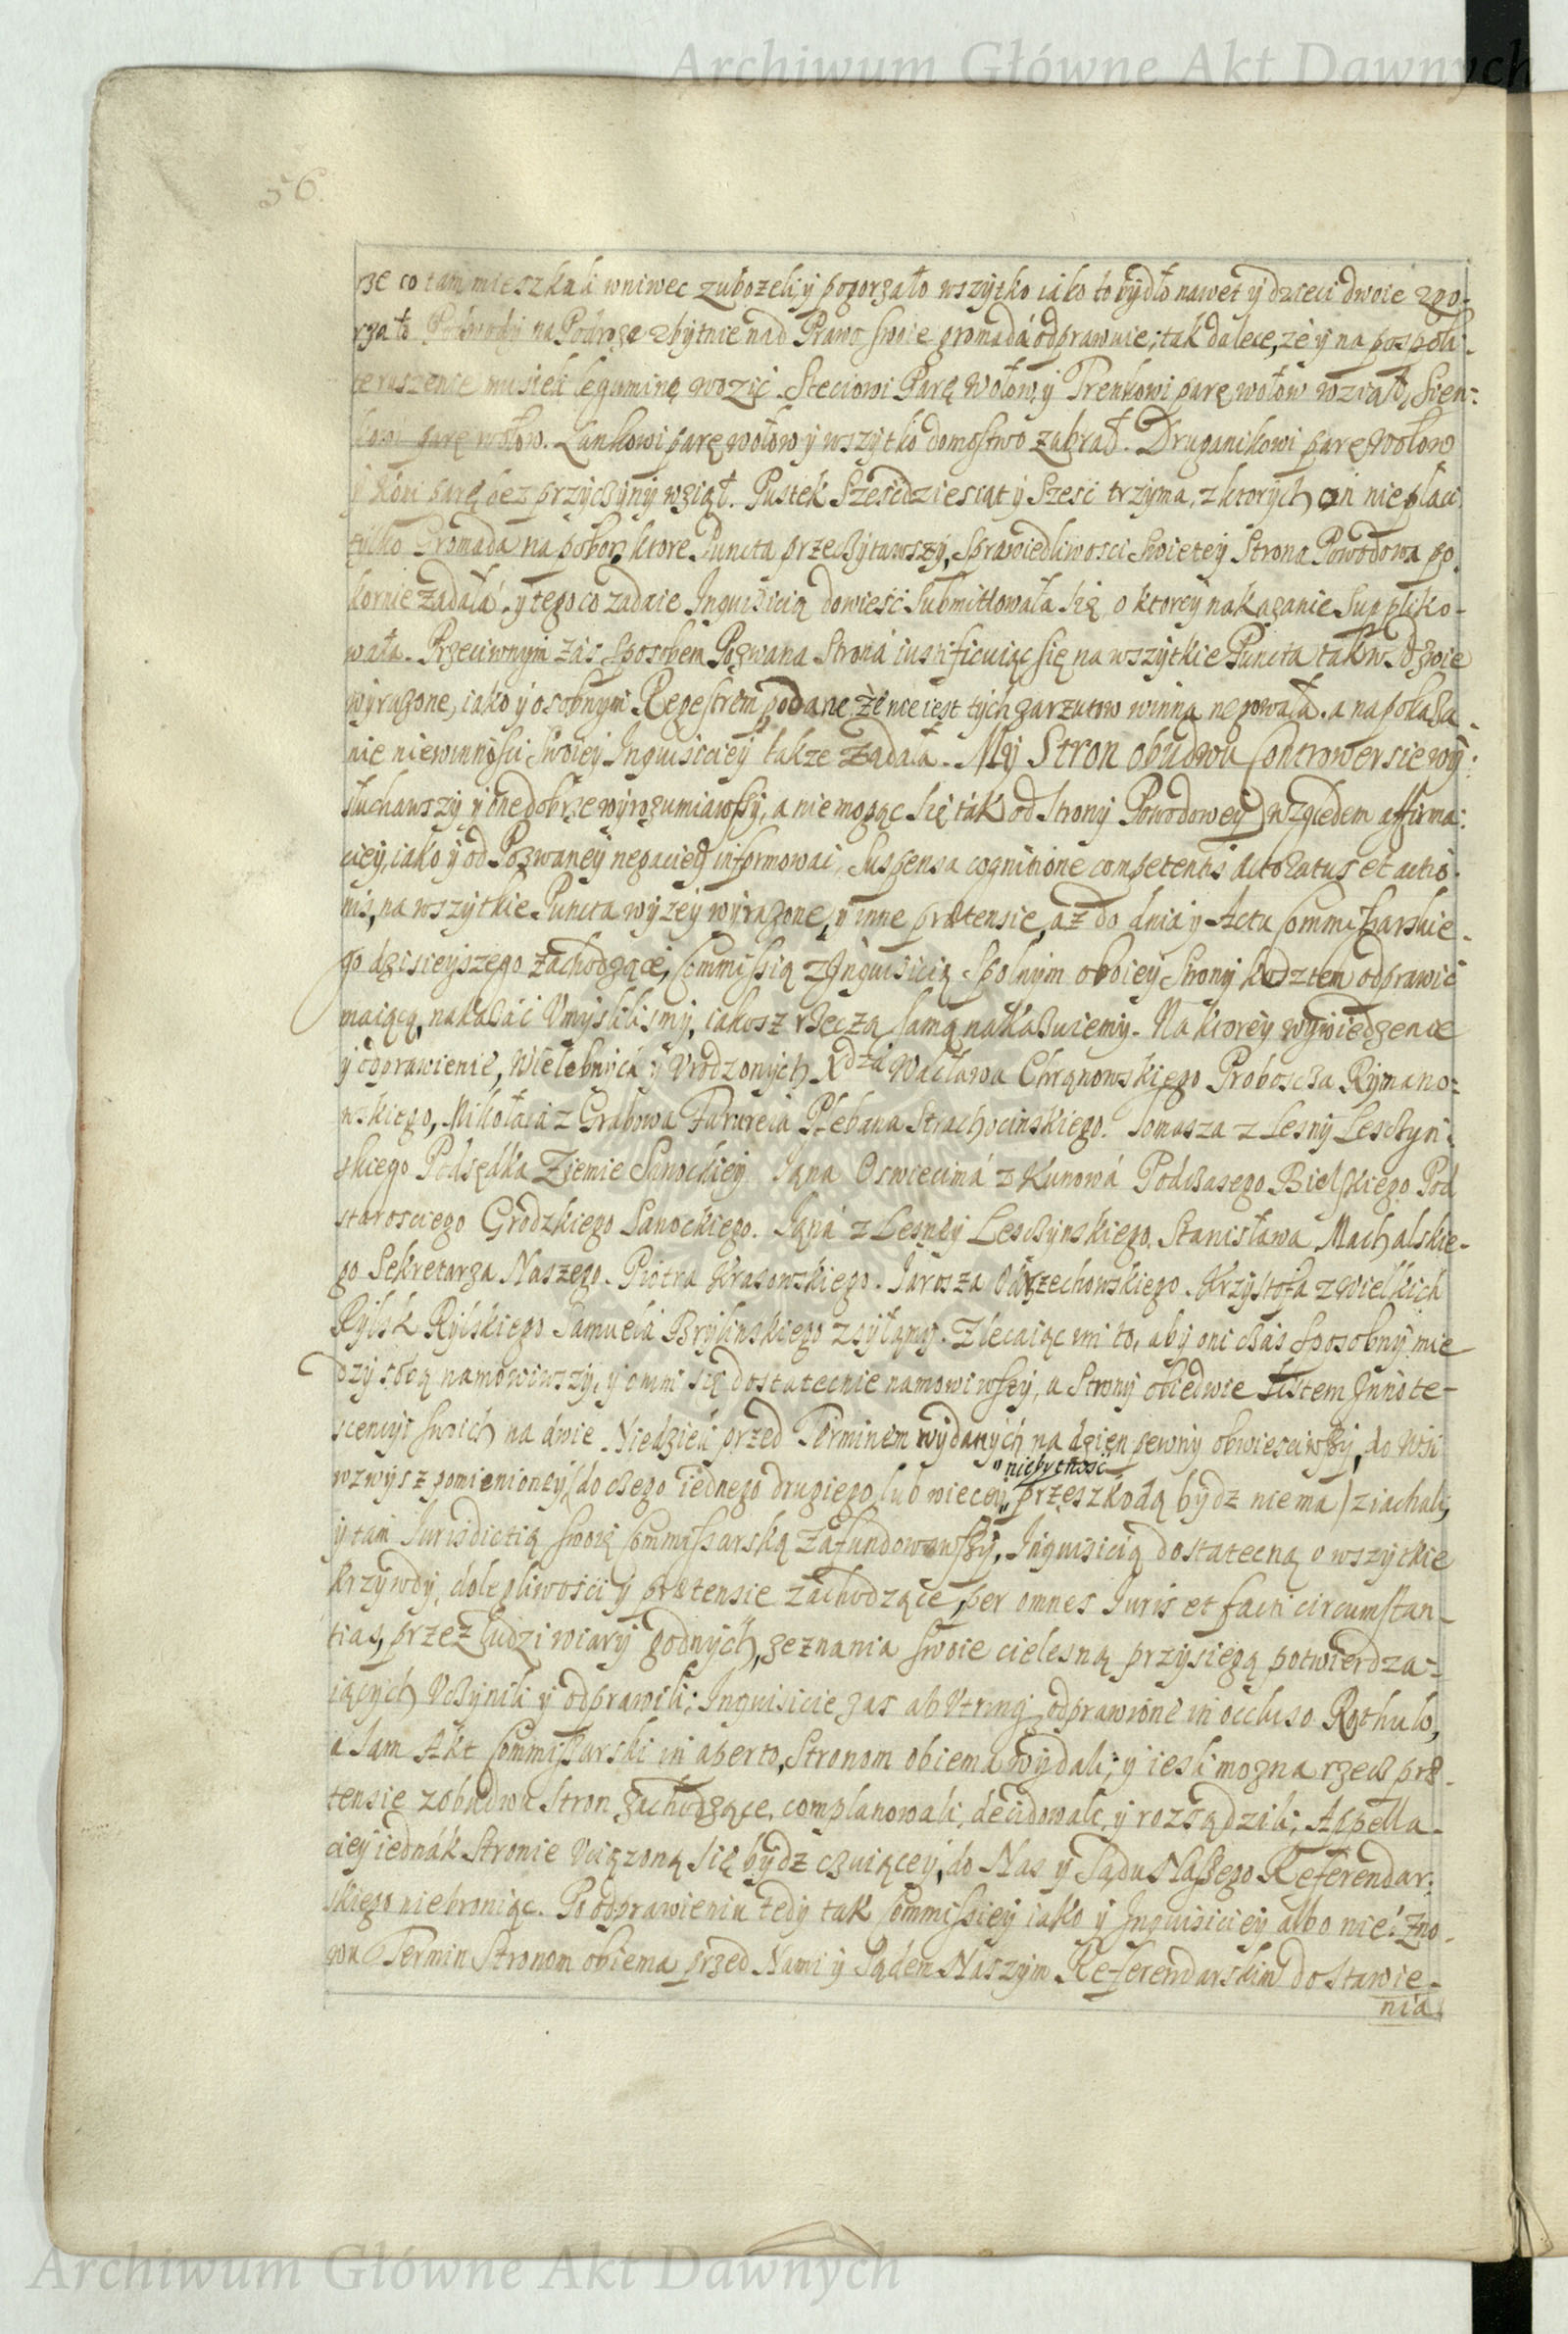 Archiwum Główne Akt Dawnych
56.
rze co tam mieszkali wniwec zubożeli, y pogorzało wszytko iako to bydło nawet y dzieci dwoie zgo-
rzało na Podroże zbytnie nad Prawo swoie gromadá odprawuie; tak dalece, że y na pospoli-
te ruszenie musieli leguminę wozić. Steciowi Parę Wołow, y Trenkowi parę wołow wziął, Sien-
kowi parę wołow. Lankowi parę wołow y wszytko domostwo zabrał. Druganikowi parę wołow
y koni parę bez przyczyny wziął. Pustek Sześćdziesiąt y Sześć trzyma, z ktorych on nie płaci
tylko Gromada na pobory ktore Puncta przeczytawszy, Sprawiedliwosci Swietey Strona Powodowa po-
kornie żądałá, y tego co zadaie Inquisicią dowieść submittowała się, o ktorey nakazanie Suppliko-
wała. Przeciwnym záś sposobem Pozwana Stroná iustificuiąc się na wszytkie Puncta tak w Pozwie
wyrażone, iako y osobnym Regestrem podane, że nie iest tych zarzutow winna negowała. a na pokaza-
nie niewinności swoiey Inquisiciey także żądała. My Stron obudwu Controwersie wy-
słuchawszy y one dobrze wyrozumiawszy, a nie mogąc się ták od Strony Powodowey względem affirma-
ciey, iako y od Pozwaney negaciey informowac, Suspensa cognitione competentis actoratus et actio-
nis, na wszytkie Puncta wyżey wyrażone, y inne prætensie, aż do dnia y Actu Commissarskie-
go dzisieyszego zachodzące, Commissią z Inquisicią Spolnym oboiey Strony kosztem odprawić
maiącą, nakazáć Umyslilismy, iakosz rzeczą samą nakazuiemy. Na ktorey wywiedzenie
y odprawienie, Wielebnych y Urodzonych Xdza Wacława Chrąnowskiego Proboszcza Rymano-
wskiego, Mikołaia z Grabowa Plebana Strachocinskiego. Tomasza z Lesny Lesczyn-
skiego Podsędka Ziemie Sanockiey Iana Oswiecimá z Kunowá Podczasego Bielskiego Pod
starosciego Grodzkiego Sanockiego. Ianá z Lesney Lesczynskiego. Stanisława Machalskie-
go Sekretarza Naszego. Piotra Krasowskiego. Jarosza Krzysztofa z Wielkich
Rylsk Rylskiego Samuela Brylinskiego zsyłamy. Zlecaiąc im to, aby oni czás sposobny mie
dzy sobą namowiwszy, y o nim się dostatecnie namowiwszy, a Strony obiedwie listem Innote-
scencyi swoich na dwie Niedzieli przed Terminem wydanych na dzien pewny obwiesciwszy, do Wsi
wzwysz pomienioney (do czego iednego drugiego lub wiecey niebytność przeszkodą bydz nie ma) ziachali,
y tam Iurisdictią swoię Commissarską zafundowawszy, Inquisicią dostatecną o wszytkie
krzywdy, dolegliwości y prætensie zachodzące, per omnes Iuris et facti circumstan-
tias, przez Ludzi wiary godnych, zeznania swoie cielesną przysięgą potwierdza-
iących Uczynili y odprawili; Inquisicie zas ab Utrinq odprawione in occluso Rothulo,
a sam Akt Commissarski in aperto, Stronom obiema wydali; y iesli można rzecz præ-
tensie z obudwu Stron zachodzące, complanowali, decidowali, y rozsądzili; Appella-
ciey iednák Stronie Uciążoną się bydz czuiącey, do Nas y Sądu Naszego Referendar-
skiego nie broniąc. Po odprawieniu tedy tak Commissiey iako y Inquisiciey albo nie: Zno-
wu Termin Stronom obiema przed Nami y Sądem Naszym Referendarskim do stawie-
nia
Archiwum Główne Akt Dawnych